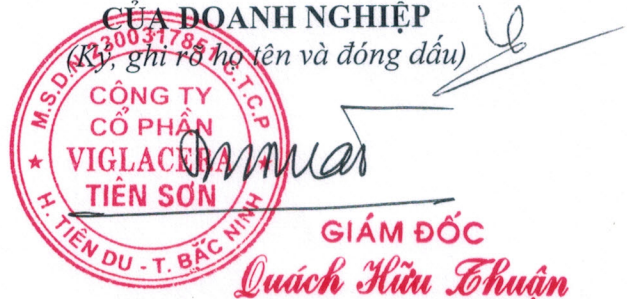 CỦA DOANH NGHIỆP
(Ký, ghi rõ họ tên và đóng dấu)
M.S.D.N: 2300317851-C.T.C.P
CÔNG TY
CỔ PHẦN
VIGLACERA
TIÊN SƠN
H. TIÊN DU - T. BẮC NINH
GIÁM ĐỐC
Quách Hữu Thuận